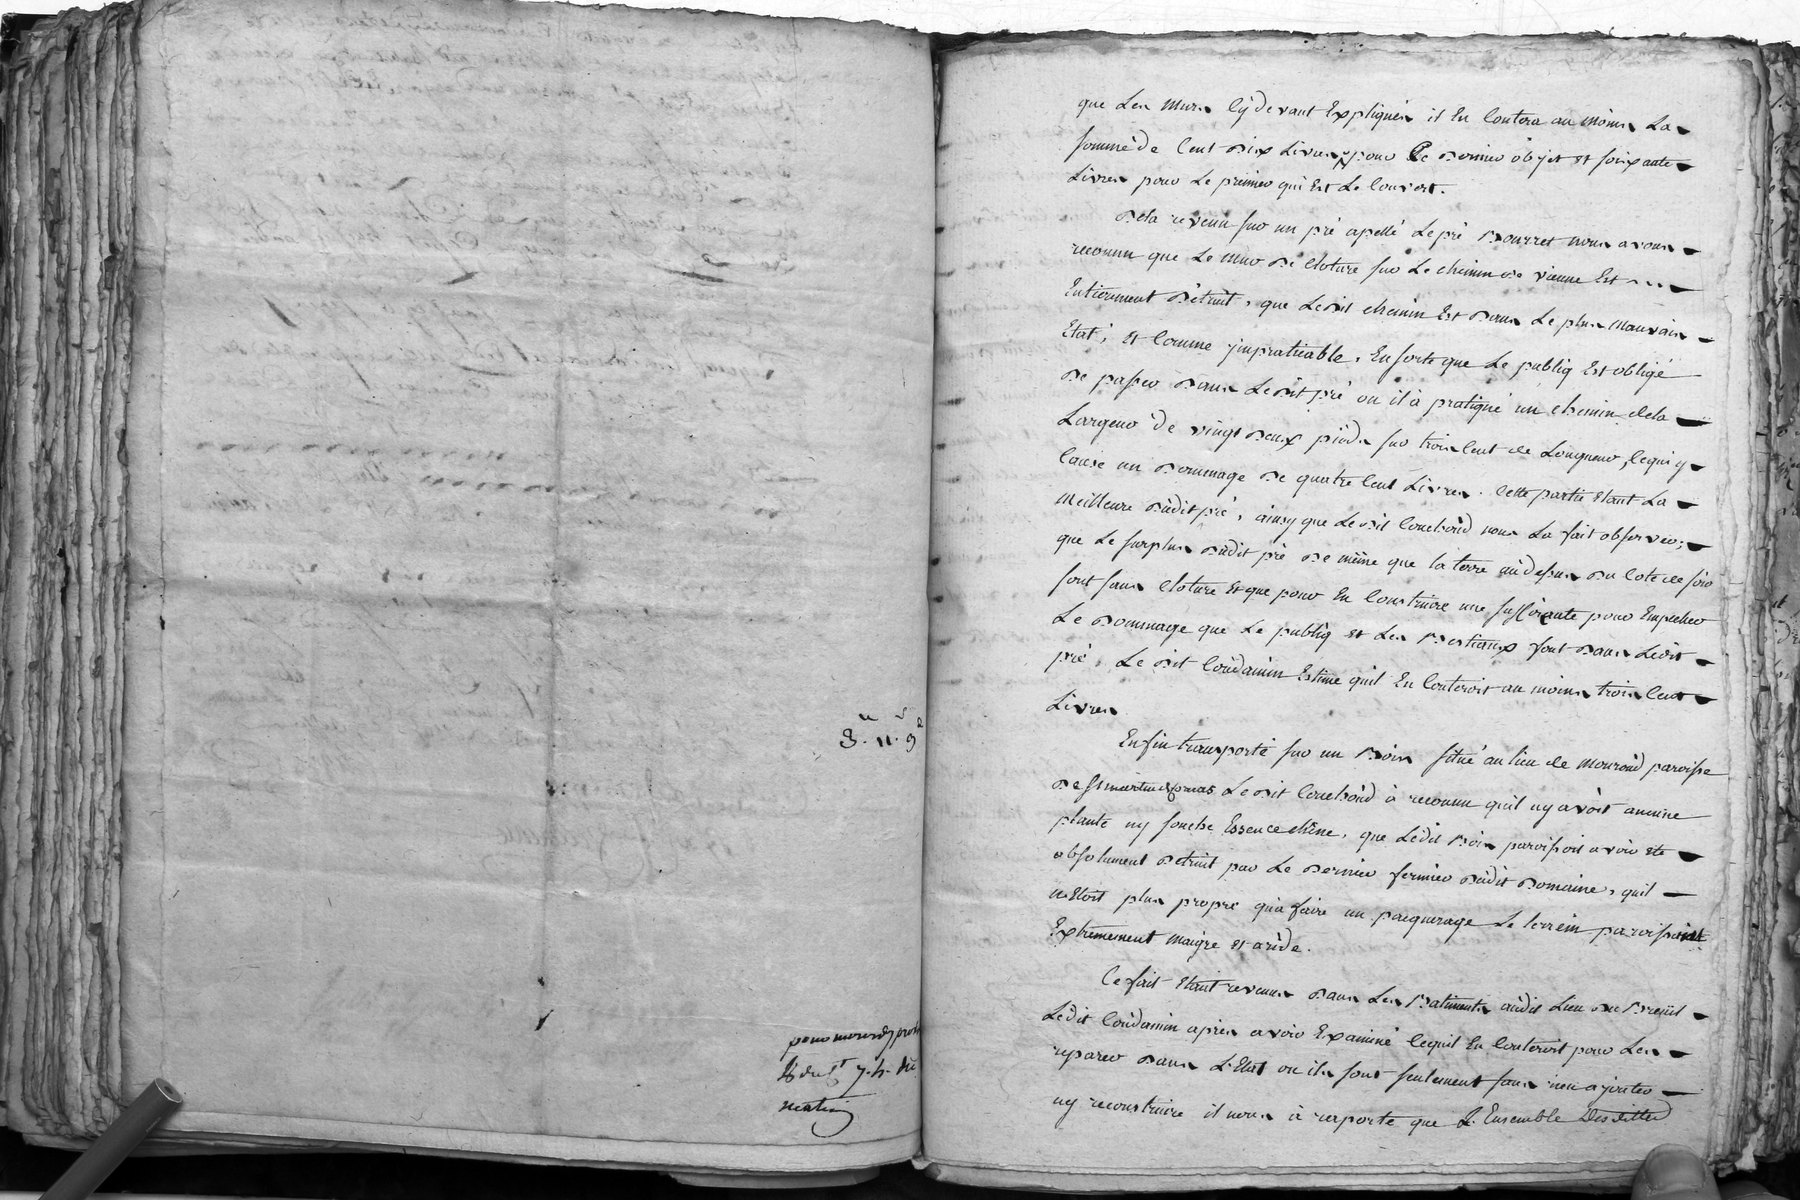 3. 11. 9
matin
que Les Murs Cÿdevant Expliqués il En Coutera au moins La
somme de Cent Dix Livres pour Le Dernier objet et soixante
Livres pour Le premier qui Est Le Couvert.
Dela revenu sur un pré apellé Le pré Bourret nous avons
reconnu que Le Mur De Cloture sur Le chemin de vienne Est
Entierement Détruit, que Ledit chemin Est Dans Le plus Mauvais
Etat, et Comme jmpraticable, En sorte que Le publiq Est obligé
De passer Dans Ledit pré ou il à pratiqué un chemin dela
Largeur de vingt Deux pieds sur trois Cent de Longueur, Cequi y
Cause un Dommage De quatre Cent Livres. Cette partie Etant La
Meilleure dudit pré, ainsy que Le dit Couchoud nous La fait observer;
que Le surplus dudit pré De même que la terre audessus Du Coté de soir
sont sans Cloture Et que pour En Construire une suffisante pour Empecher
Le Dommage que Le publiq et Les Bestiaux font Dans Ledit
pré, Le dit Coudamin Estime quil En Couteroit au moins trois Cent
Livres
Enfin transporté sur un Bois situé au lieu de Mouroud paroisse
De St martin Le Dit Couchoud à reconnu quil ny avoit aucune
plante ny souche Essence chêne, que Ledit Bois paroissoit avoir eté
absolument Détruit par Le Dernier fermier dudit Domaine, quil
nEtoit plus propre qu'a faire un paquerage Le terrein paroissant
Extremement maigre et aride.
Ce fait Etant revenus Dans Les Batiments audit Lieu du Breüil
Ledit Coudamin apres avoir Examiné Cequil En Couteroit pour Les
reparer Dans L'Etat ou ils sont seulement sans rien ajouter
ny reconstruire il nous à raporté que L'Ensemble Desdittes